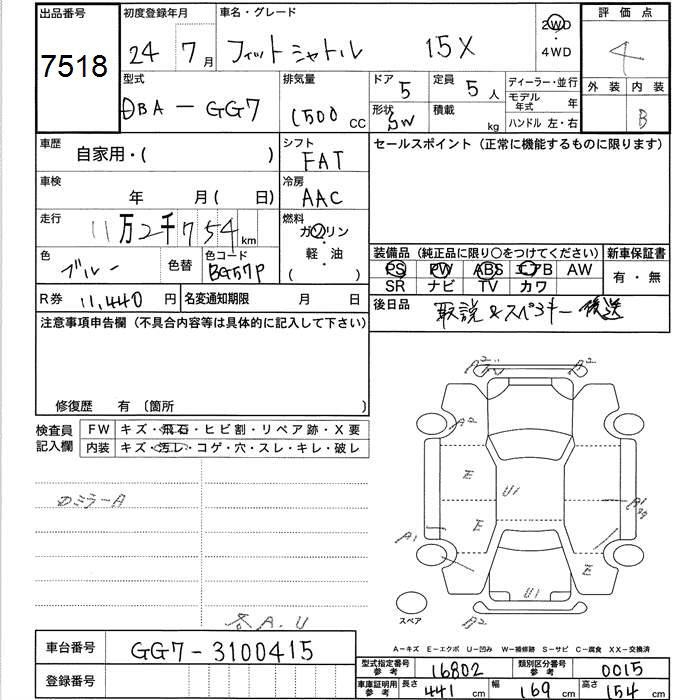 出品番号 初度登録年月 車名・グレード 2WD 評価点
7518 24 7月 フィットシャトル 15X ・4WD 4
型式 排気量 ドア 定員 ディーラー・並行 外装 内装
DBA-GG7 1500cc 5 5人 モデル年式 年 B
形状 積載 SW kg ハンドル 左・右
車歴 自家用・( ) シフト FAT セールスポイント(正常に機能するものに限ります)
車検 年 月( 日) 冷房 AAC
走行 11万2千754km 燃料 ガソリン・軽・油( )
色 ブルー 色替 色コード BG57P
装備品(純正品に限り○をつけてください) 新車保証書
PS PW ABS エアB AW 有・無
SR ナビ TV カワ
R券 11,440円 名変通知期限 月 日 後日品 取説&スペアキー 後送
注意事項申告欄(不具合内容等は具体的に記入して下さい)
修復歴 有 〔箇所 〕
検査員記入欄 FW キズ・飛石・ヒビ割・リペア跡・X要
内装 キズ・汚レ・コゲ・穴・スレ・キレ・破レ
A2
A2
A2
E
U1
A1
E
A1
E
U1
A2
ミラーA
各A.U
スペア
A-キズ E-エクボ U-凹み W-補修跡 S-サビ C-腐食 XX-交換済
車台番号 GG7-3100415
型式指定番号参考 16802 類別区分番号参考 0015
登録番号
車庫証明用参考 長さ 441cm 幅 169cm 高さ 154cm